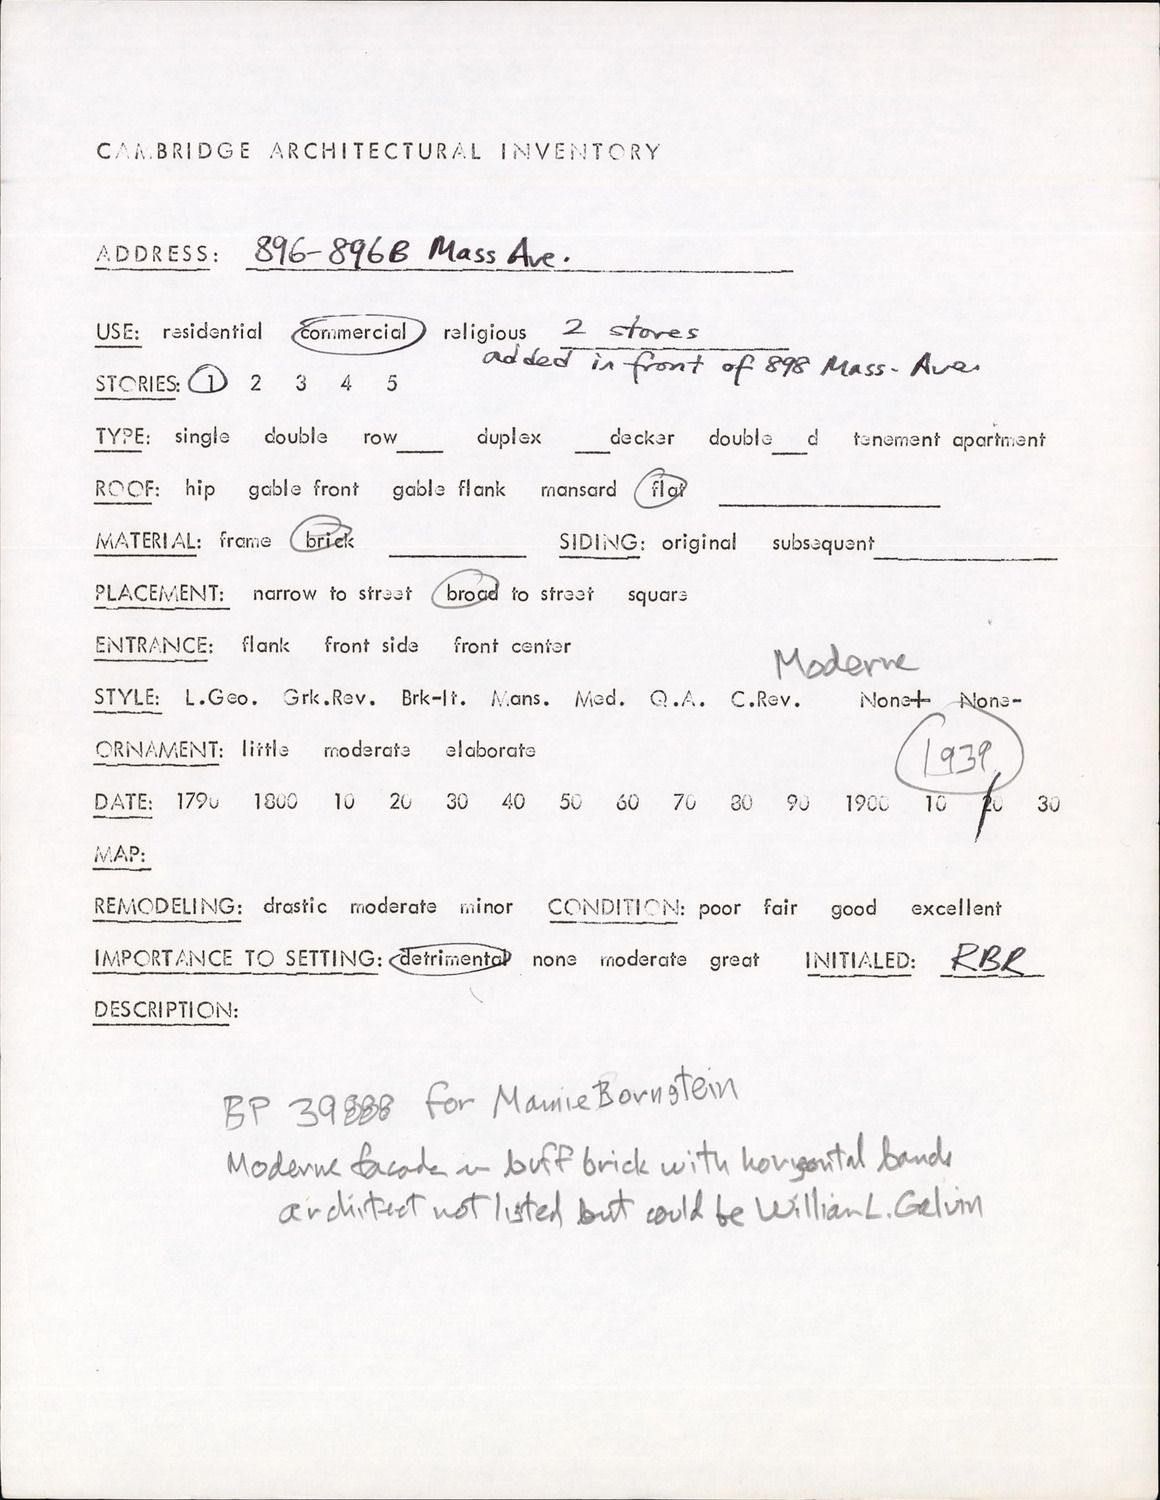 CAMBRIDGE ARCHITECTURAL INVENTORY
ADDRESS: 896-896B Mass Ave.
USE: residential commercial religious 2 stores
added in front of 898 Mass. Ave.
STORIES: 1 2 3 4 5
TYPE: single double row___ duplex ___decker double___d tenement apartment
ROOF: hip gable front gable flank mansard flat
MATERIAL: frame brick SIDING: original subsequent
PLACEMENT: narrow to street broad to street square
ENTRANCE: flank front side front center
Moderne
STYLE: L.Geo. Grk.Rev. Brk-It. Mans. Med. Q.A. C.Rev. None+ None-
ORNAMENT: little moderate elaborate
1939
DATE: 1790 1800 10 20 30 40 50 60 70 80 90 1900 10 20 30
MAP:
REMODELING: drastic moderate minor CONDITION: poor fair good excellent
IMPORTANCE TO SETTING: detrimental none moderate great INITIALED: RBR
DESCRIPTION:
BP 39888 for Mamie Bornstein
Moderne facade in buff brick with horizontal bands
architect not listed but could be William L. Galvin